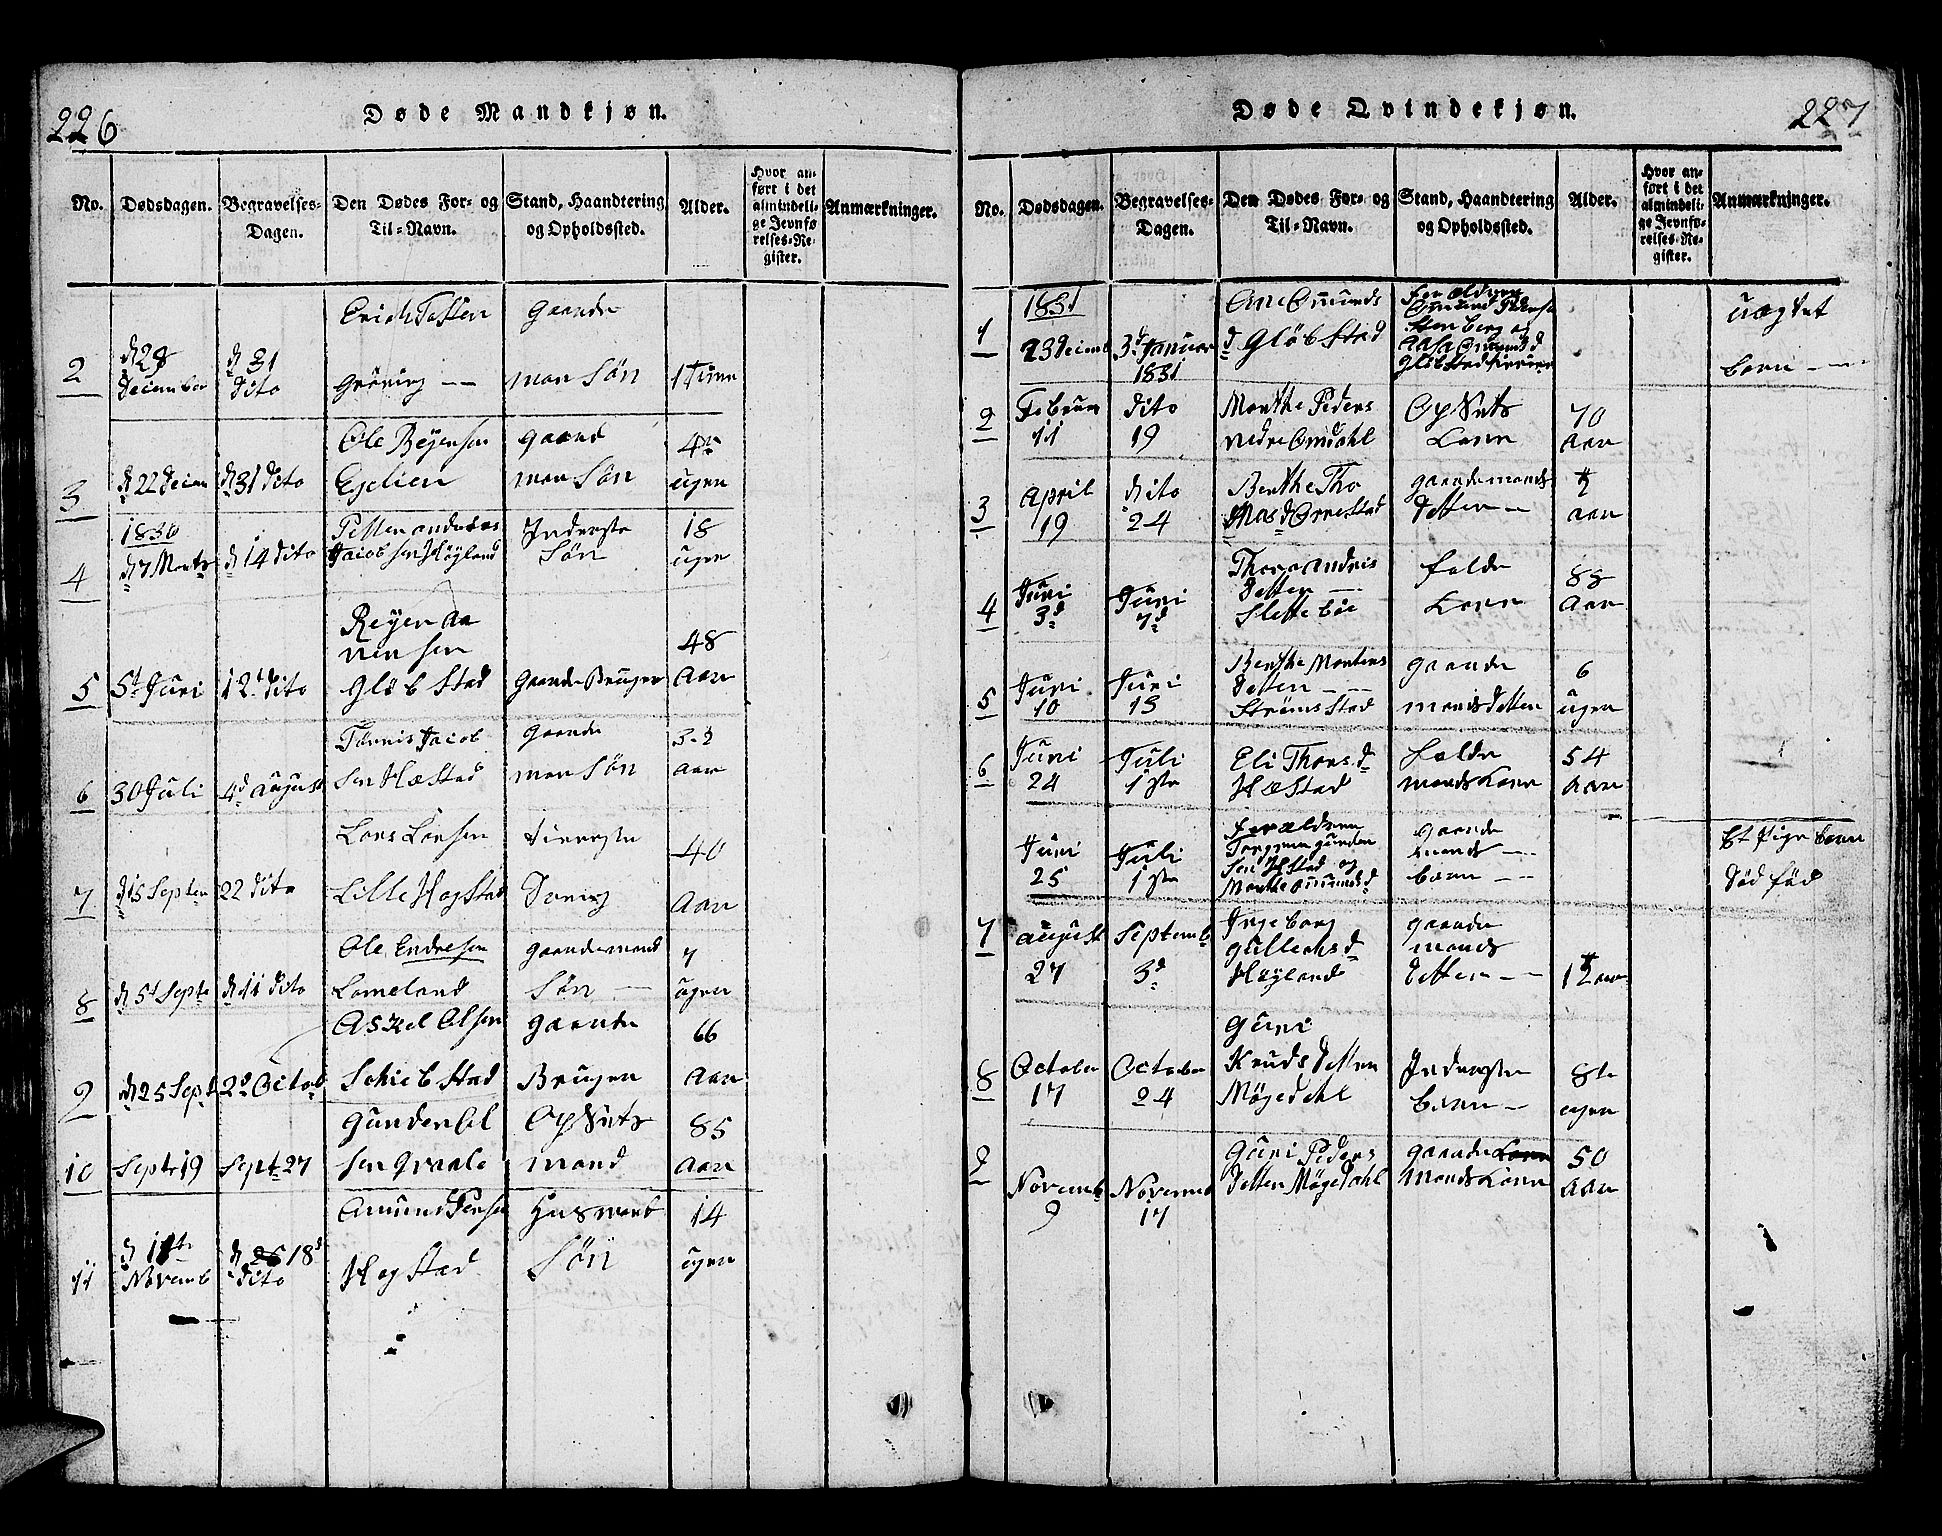 226
Døde Mandkjøn.
No.
Dødsdagen.
Begravelses-
Dagen.
Den Dødes For- og
Til-Navn.
Stand, Haandtering
og Opholdssted.
Alder.
Hvor an-
ført i det
almindeli-
ge Jevnfø-
relses-Re-
gister.
Anmærkninger.
2
d 28
December
d 31
Dito
Erich
Grøning
Gaarde
man Søn
1
3
d 22
d 31 dito
Ole Reyersen
Egelien
gaard
man Søn
4
ugen
1830
4
d 7 Marts
d 14 dito
Petter
Jacobsen Høyland
Inderste
Søn
18
ugen
5
5t Juni
12t dito
Reyer Aa
nensen
Gløbstad
Gaarde Bruger
48
Aar
6
30 Juli
4d august
Tønnis Jacob
sen Hæstad
Gaarde
man Søn
Aar
7
d 15 Septem
22 dito
Lars Larsen
Lille Hogstad
40
Aar
8
d 5t Septe
d 11 dito
Ole Endresen
Lomeland
gaardemand
Søn
7
ugen
9
d 25 Sept
2d Octob
Askel Olsen
Schiebstad
gaarde
Bruger
66
Aar
10
Septr 19
Sept. 27
Gunder Ol
sen Graale
Op Sids
mand
85
Aar
11
d 11te
Novemb
d 18d
Dito
Hogstad
Husmand
Søn
14
ugen
227
Døde Qvindekjøn.
No.
Dødsdagen.
Begravelses-
Dagen.
Den Dødes For- og
Til-Navn.
Stand, Haandtering
og Opholdssted.
Alder.
Hvor an-
ført i det
almindeli-
ge Jevnfø-
relses-Re-
gister.
Anmærkninger.
1831
1
23
3d Januar
1831
Ane Omunds
d Gløbstad
Forældren
Omund Peders
Stenberg og
Aasa Omunds d
Gløbstad
uægtet
barn
2
Februar
11
dito
19
Marthe Peders
nedre Omdahl
Op Sids
Kone
70
Aar
3
April
19
dito
24
Berthe Tho
mas d Ørrestad
gaardemands
Detter
aar
4
Juni
3d
Juni
7d
Andreis
Detter
Slettebøe
folde
Kone
88
Aar
5
Juni
10
Juni
13
Berthe Mortens
Detter
Strømstad
gaarde
mands Detter
6
ugen
6
Juni
24
Juli
1ste
Eli Thors d
Hæstad
folde
mands Kone
54
Aar
Juni
25
Juli
1ste
Forældren
Torgrim Gunder
sen Hstad og
Marthe Omunds d
gaarde
mands
barn
Et Pige barn
Død fød
7
august
27
Septemb
3d
Ingeborg
Gullechs d
Høyland
gaarde
mands
Detter
12 aar
8
October
17
October
24
Guni
Knuds Detter
Møgedahl
Inderste
Barn
8te
ugen
9
Novemb
9
Novemb
17
Guri Peders
Detter Møgedahl
gaarde
mands Kone
50
Aar